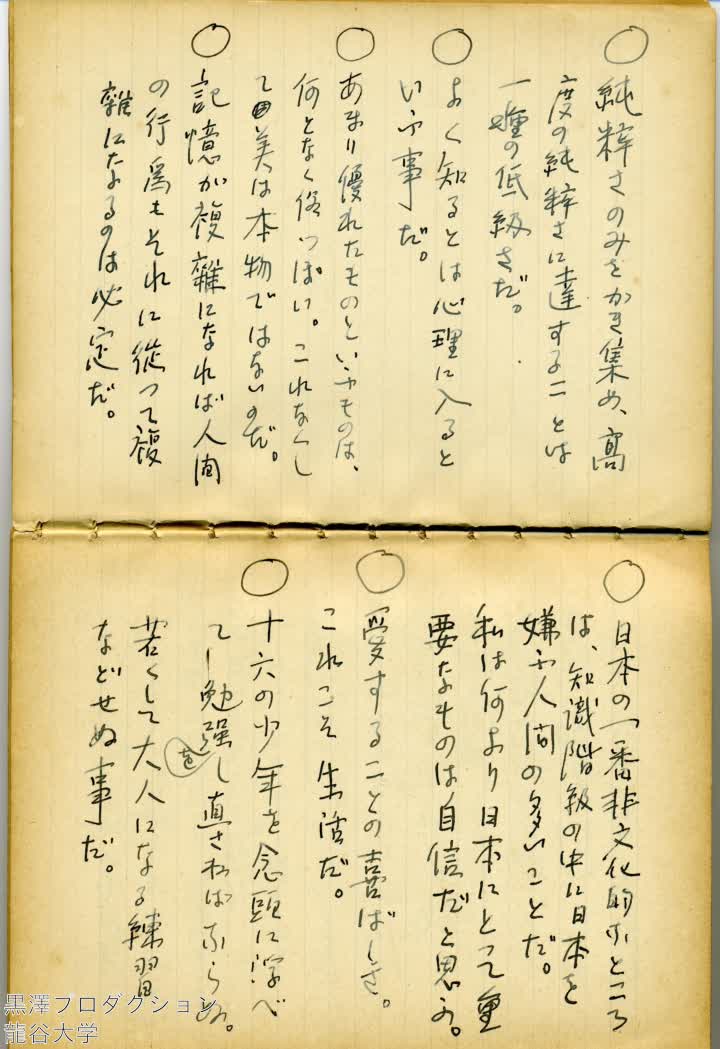 ○ 純粋さのみをかき集め、高
度の純粋さに達することは
一種の低級さだ。
○ よく知るとは心理に入ると
いふ事だ。
○ あまり優れたものといふものは、
何となく俗つぽい。これなくし
て美は本物ではないのだ。
○ 記憶が複雑になれば人間
の行為もそれに従つて複
雑になるのは必定だ。
○ 日本の一番非文化的なところ
は、知識階級の中に日本を
嫌ふ人間の多いことだ。
私は何より日本にとつて重
要なものは自信だと思ふ。
○ 愛することの喜ばしさ。
これこそ生活だ。
○ 十六の少年を念頭に浮べ
て勉強をし直さねばならぬ。
若くして大人になる練習
などせぬ事だ。
黒澤プロダクション
龍谷大学